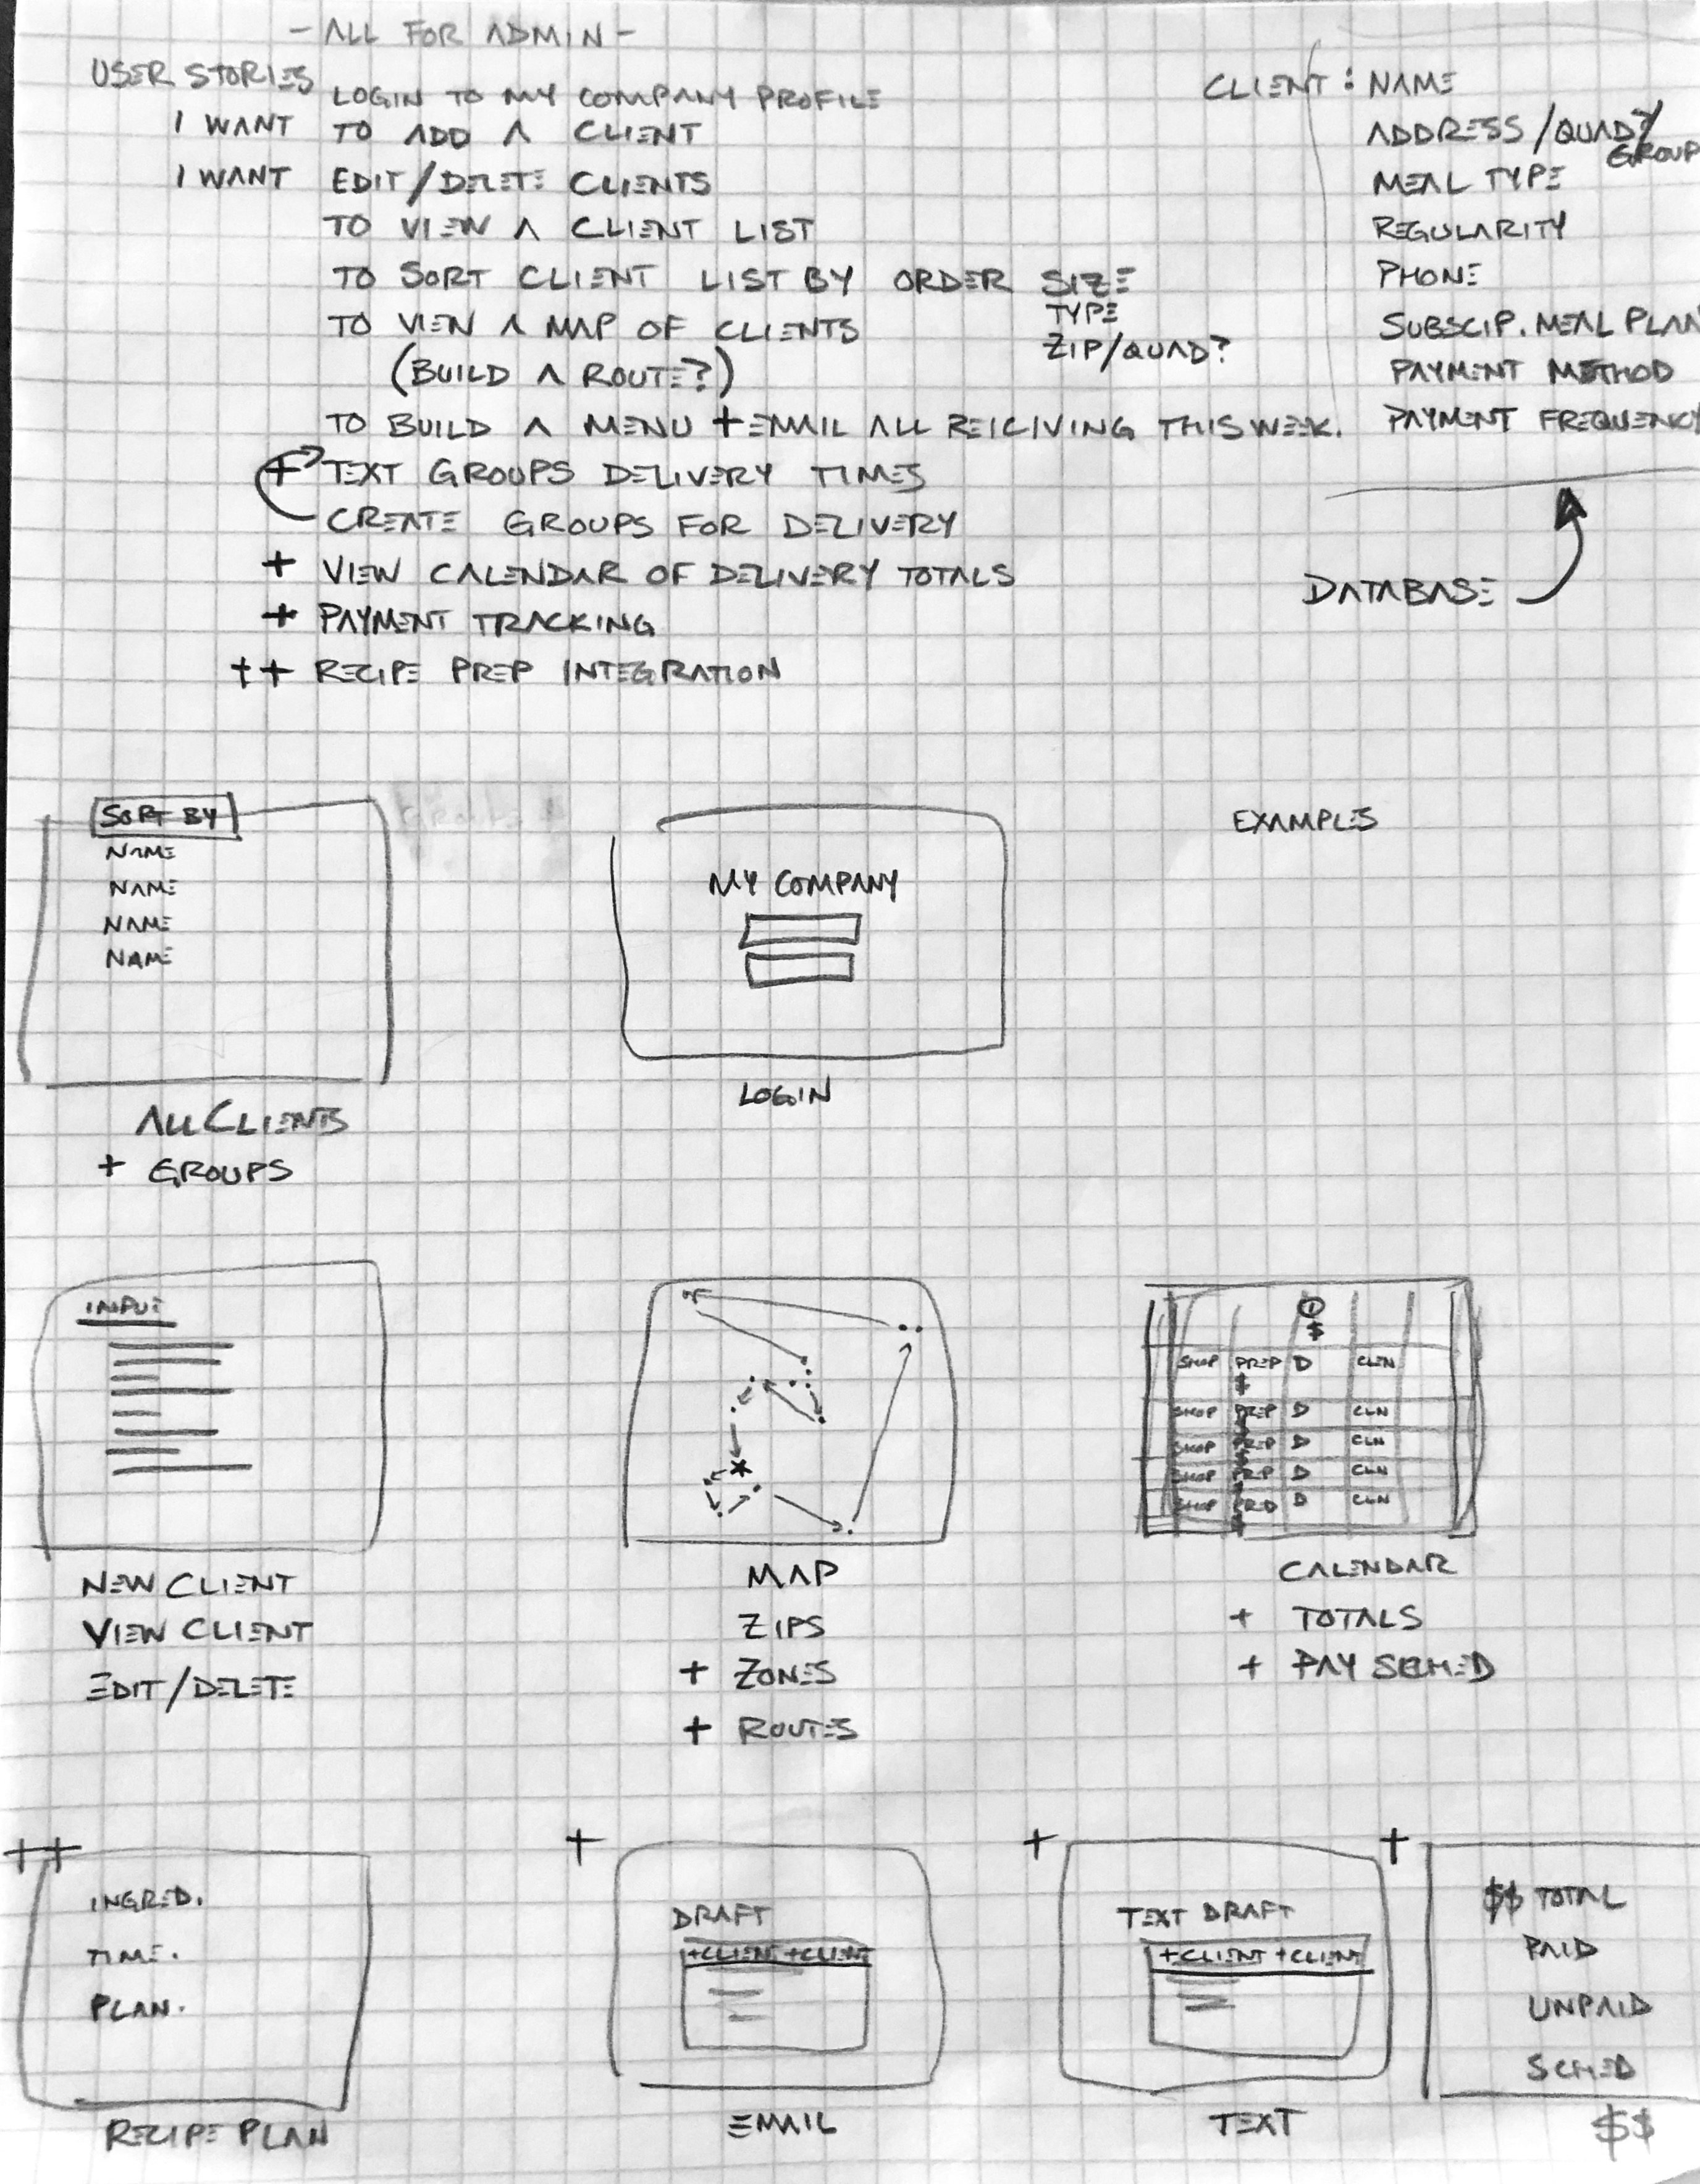 - ALL FOR ADMIN -
USER STORIES
LOGIN TO MY COMPANY PROFILE
I WANT TO ADD A CLIENT
I WANT EDIT/DELETE CLIENTS
TO VIEW A CLIENT LIST
TO SORT CLIENT LIST BY ORDER SIZE
TYPE
ZIP/QUAD?
TO VIEW A MAP OF CLIENTS
(BUILD A ROUTE?)
TO BUILD A MENU + EMAIL ALL REICIVING THIS WEEK.
+ TEXT GROUPS DELIVERY TIMES
CREATE GROUPS FOR DELIVERY
+ VIEW CALENDAR OF DELIVERY TOTALS
+ PAYMENT TRACKING
++ RECIPE PREP INTEGRATION
CLIENT : NAME
ADDRESS/QUAD?/
GROUP
MEAL TYPE
REGULARITY
PHONE
SUBSCIP. MEAL PLAN
PAYMENT METHOD
PAYMENT FREQUENCY
DATABASE
SORT BY
NAME
NAME
NAME
NAME
ALL CLIENTS
+ GROUPS
MY COMPANY
LOGIN
EXAMPLES
INPUT
NEW CLIENT
VIEW CLIENT
EDIT/DELETE
MAP
ZIPS
+ ZONES
+ ROUTES
$
SHOP PREP D CLEN
$
SHOP PREP D CLN
SHOP PREP D CLN
SHOP PREP D CLN
SHOP PREP D CLN
CALENDAR
+ TOTALS
+ PAY SCHED
++
INGRED.
TIME.
PLAN.
RECIPE PLAN
+
DRAFT
+CLIENT +CLIENT
EMAIL
+
TEXT DRAFT
+CLIENT +CLIENT
TEXT
+
$$ TOTAL
PAID
UNPAID
SCHED
$$